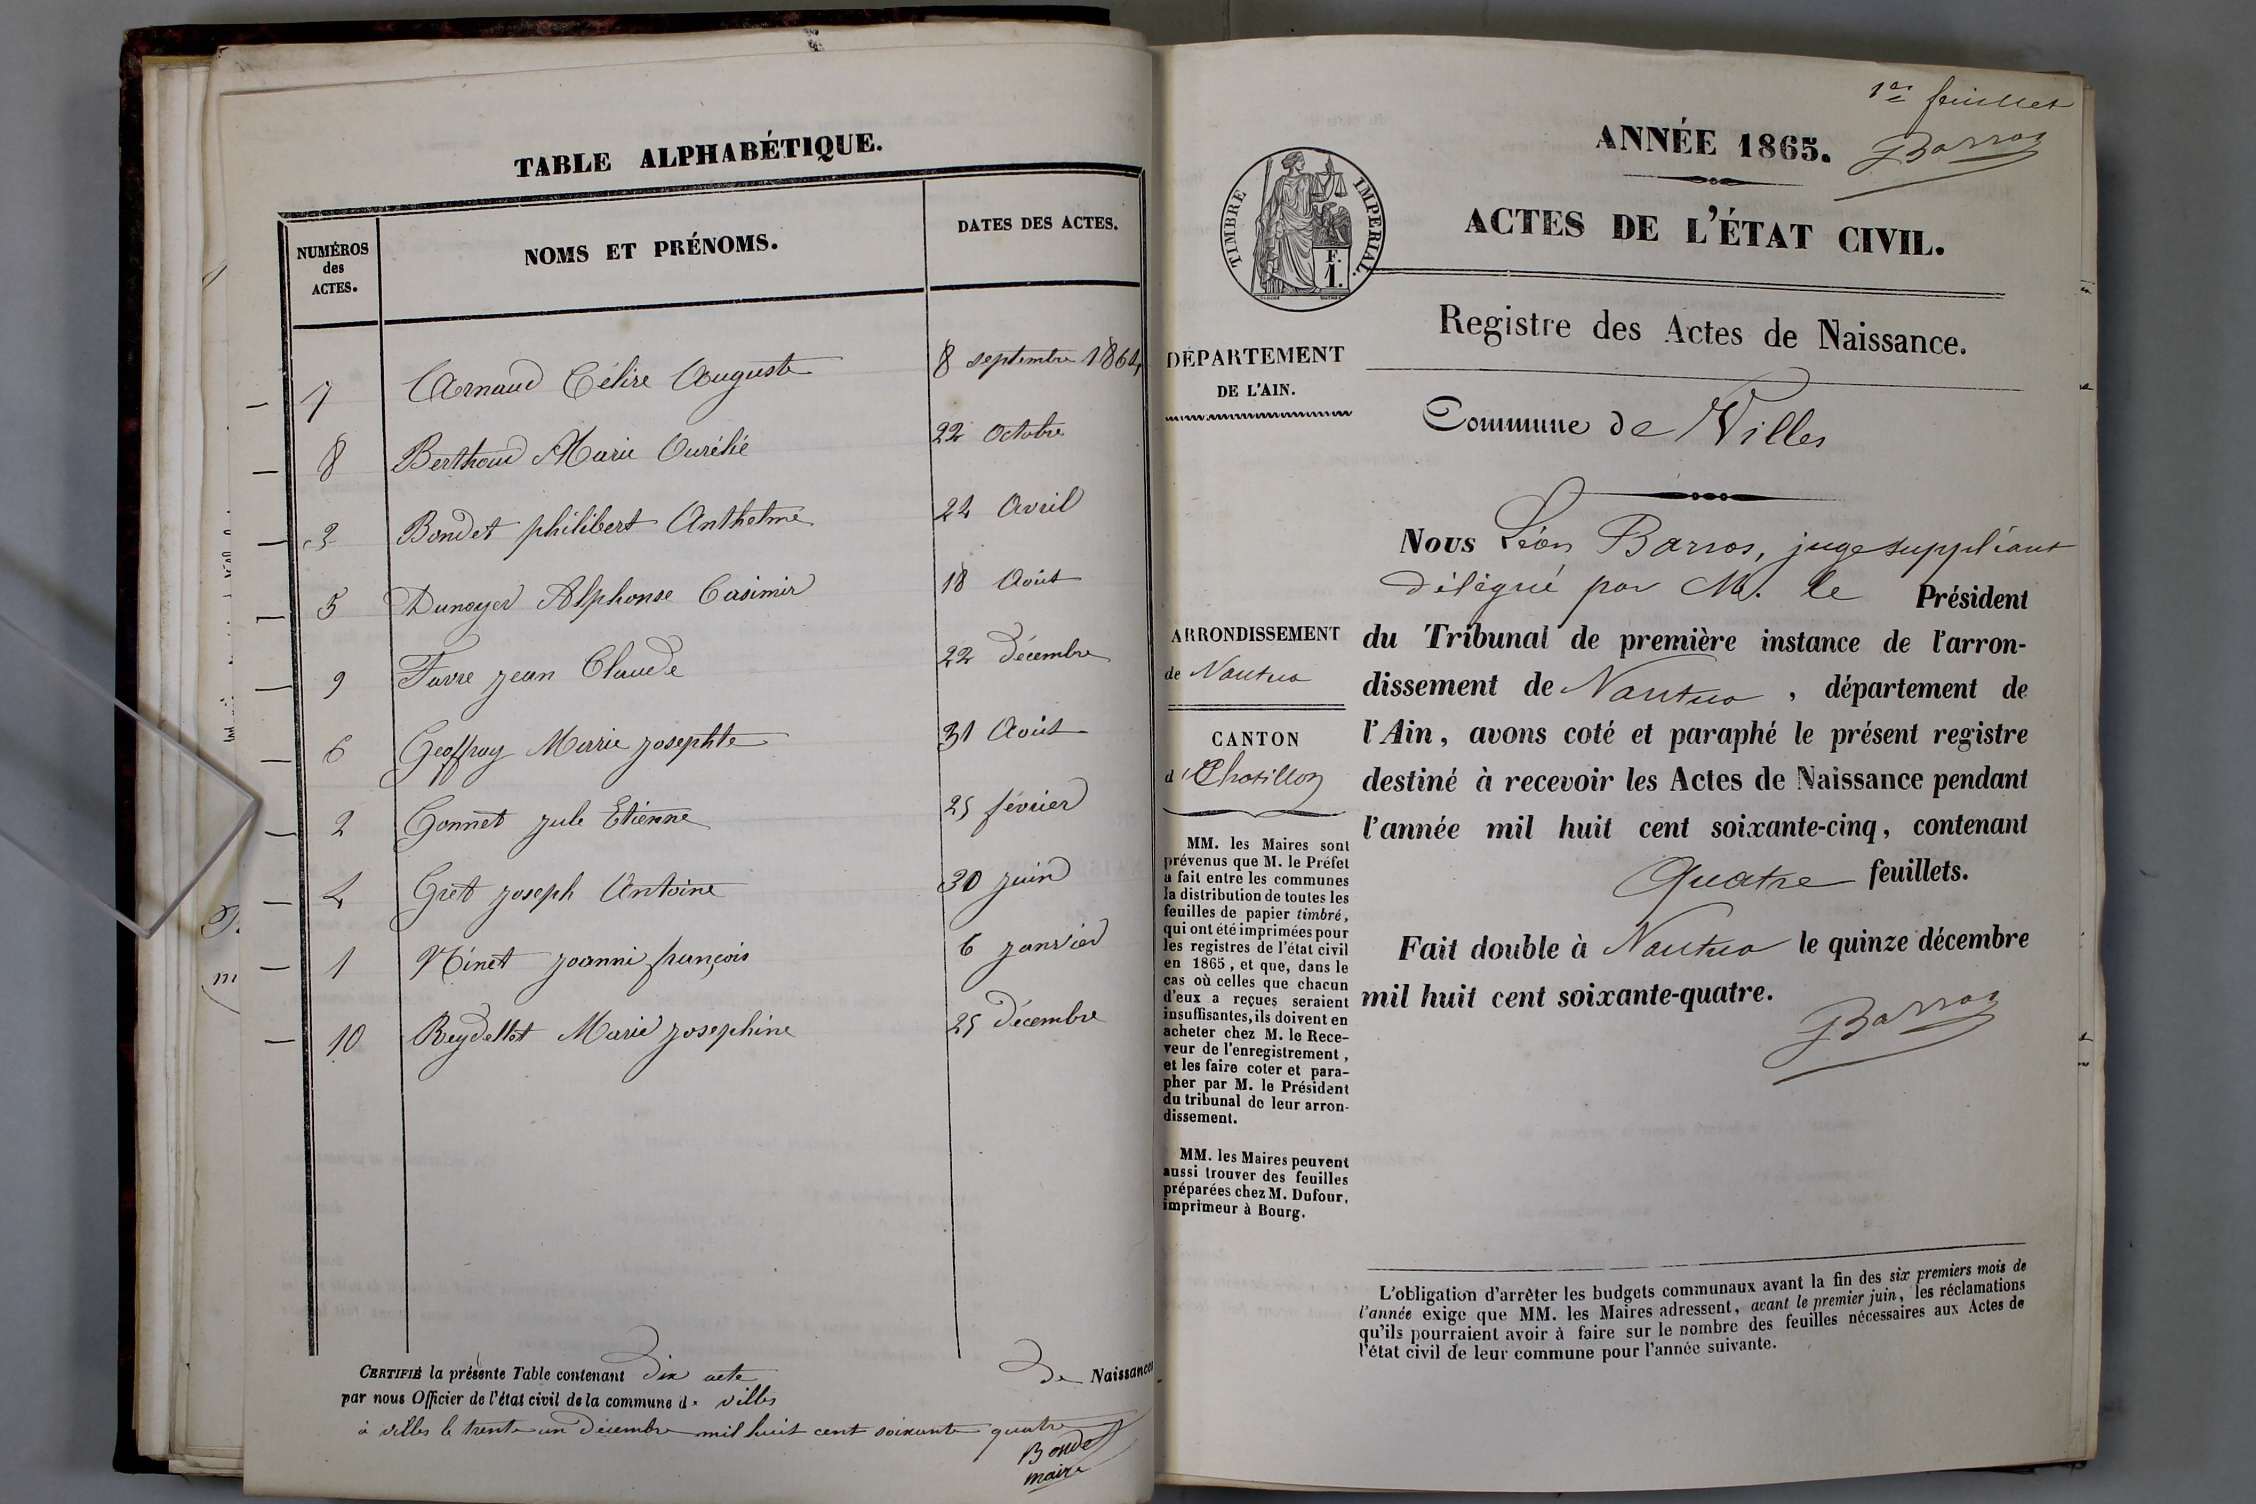 TABLE ALPHABÉTIQUE.
NUMÉROS
des
ACTES.
NOMS ET PRÉNOMS.
DATES DES ACTES.
7 Arnaud Célire Auguste 8 septembre 1864
8 Berthoud Marie Aurélie 22 Octobre
3 Bondet philibert Anthelme 22 Avril
5 Dunoyer Alphonse Casimir 18 Août
9 Favre jean Claude 22 décembre
6 Geoffray Marie josephte 31 Août
2 Gonnet jule Etienne 25 février
4 Gret joseph Antoine 30 juin
1 Ninet joanni françois 6 janvier
10 Reydellet Marie josephine 25 décembre
CERTIFIÉ la présente Table contenant dix acte de Naissances
par nous Officier de l'état civil de la commune d. villes
à villes le trente un décembre mil huit cent soixante quatre
Bondet
maire
1er feuillet
Barros
ANNÉE 1865.
ACTES DE L'ÉTAT CIVIL.
TIMBRE IMPERIAL.
F.
1.
Registre des Actes de Naissance.
DÉPARTEMENT
DE L'AIN.
Commune de Villes
ARRONDISSEMENT
de Nantua
CANTON
d Chatillon
MM. les Maires sont
prévenus que M. le Préfet
a fait entre les communes
la distribution de toutes les
feuilles de papier timbré,
qui ont été imprimées pour
les registres de l'état civil
en 1865, et que, dans le
cas où celles que chacun
d'eux a reçues seraient
insuffisantes, ils doivent en
acheter chez M. le Rece-
veur de l'enregistrement,
et les faire coter et para-
pher par M. le Président
du tribunal de leur arron-
dissement.
MM. les Maires peuvent
aussi trouver des feuilles
préparées chez M. Dufour,
imprimeur à Bourg.
Nous Léon Barros, juge suppléant
délégué par M. le Président
du Tribunal de première instance de l'arron-
dissement de Nantua, département de
l'Ain, avons coté et paraphé le présent registre
destiné à recevoir les Actes de Naissance pendant
l'année mil huit cent soixante-cinq, contenant
Quatre feuillets.
Fait double à Nantua le quinze décembre
mil huit cent soixante-quatre.
Barros
L'obligation d'arrêter les budgets communaux avant la fin des six premiers mois de
l'année exige que MM. les Maires adressent, avant le premier juin, les réclamations
qu'ils pourraient avoir à faire sur le nombre des feuilles nécessaires aux Actes de
l'état civil de leur commune pour l'année suivante.